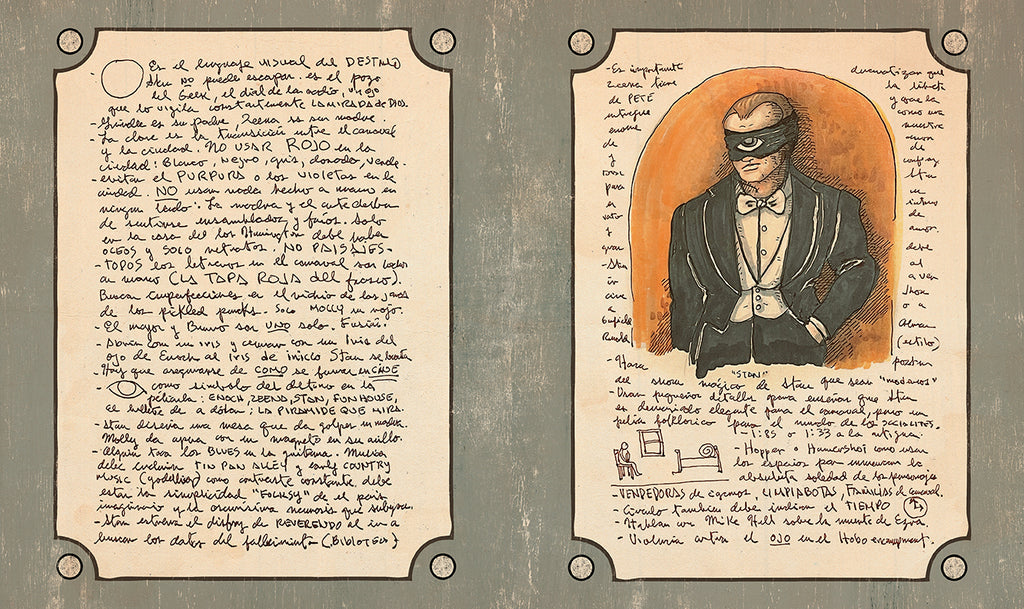 Es el lenguaje visual del DESTINO
Stan NO puede escapar. es el pozo
del Geek, el dial de la radio, un ojo
que lo vigila constantemente LA MIRADA de DIOS.
- Grindle es su padre. Zeena es su madre.
- La clave es la transición entre el carnaval
y la ciudad. NO USAR ROJO en la
ciudad: Blanco, negro, gris, dorado, verde.
- evitar el PURPURA o los VIOLETAS en la
ciudad. NO usar nada hecho a mano en
ningun lado. La madera y el arte deben
de sentirse ensamblados y fríos. Solo
en la casa del los Harrington debe haber
OLEOS y SOLO retratos. NO PAISAJES-
- TODOS los letreros en el carnaval son hechos
a mano (LA TAPA ROJA del frasco).
Buscar imperfecciones en el vidrio de los jars
de los pickled punks. Solo MOLLY en rojo.
- El mayor y Bruno son UNO solo. Fusión.
- Abrir con un iris y cerrar con un Iris del
ojo de Enoch al iris de inicio Stan se
- Hay que asegurarse de COMO se fuma en CINE
- como símbolo del destino en la
película: ENOCH, ZEENA, STAN, FUNHOUSE,
el billete de a dólar: LA PIRAMIDE QUE MIRA.
- Stan diseña una mesa que da golpes
Molly da apoyo con un magneto en su anillo.
- Alguien toca los BLUES en la guitarra. Musica
debe incluir TIN PAN ALLEY y early COUNTRY
MUSIC (yodelling) como contraste constante, debe
estar la simplicidad "FOLKSY" de el país
imaginario y la
- Stan estrena el disfraz de REVERENDO al ir a
buscar los datos del fallecimiento (BIBLIOTECA)
- Es importante dramatizar que
Zeena tiene la libreta
de PETE y que la
entregue como una
enorme muestra
de amor
y de
para Stan
en un
vato intento
y de
gran amor.
- Stan debe
ir al
cine a ver
a Show
Garfield o a
Ronald Colman
(estilo)
- Hará
"STAN"
del show mágico de Stan que sean "modernos"
- Usar pequeños detalles para enseñar que Stan
es demasiado elegante para el carnaval, pero un
pelín folklórico para el mundo de los SOCIALITES.
- 1:85 o 1:33 a la antigua.
- Hopper o Hammershoi como usan
los espacios para enmarcar la
absoluta soledad de los personajes
- VENDEDORAS de cigarros, LIMPIABOTAS, FAMILIAS de carnaval.
- Circulo tambien debe indicar el TIEMPO
- Hablar con Mike Hill sobre la muerte de Ezra.
- Violencia contra el OJO en el Hobo encampment.